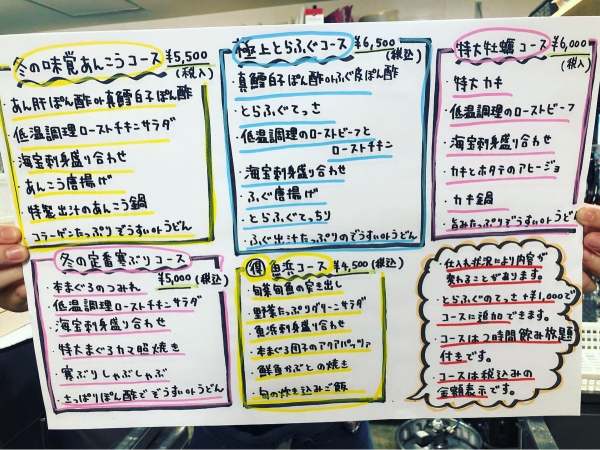 冬の味覚あんこうコース ¥5,500
(税込)
・あん肝ぽん酢or真鱈白子ぽん酢
・低温調理ローストチキンサラダ
・海宝刺身盛り合わせ
・あんこう唐揚げ
・特製出汁のあんこう鍋
・コラーゲンたっぷりぞうすいorうどん
極上とらふぐコース ¥6,500
(税込)
・真鱈白子ぽん酢orふぐ皮ぽん酢
・とらふぐてっさ
・低温調理のローストビーフと
ローストチキン
・海宝刺身盛り合わせ
・ふぐ唐揚げ
・とらふぐてっちり
・ふぐ出汁たっぷりのぞうすいorうどん
特大牡蠣コース ¥6,000
(税込)
・特大カキ
・低温調理のローストビーフ
・海宝刺身盛り合わせ
・カキとホタテのアヒージョ
・カキ鍋
・旨みたっぷりぞうすいorうどん
冬の定番寒ぶりコース
¥5,000(税込)
・本まぐろのつみれ
・低温調理ローストチキンサラダ
・海宝刺身盛り合わせ
・特大まぐろカマ照焼き
・寒ぶりしゃぶしゃぶ
・さっぱりぽん酢でぞうすいorうどん
魚浜コース ¥4,500(税込)
・旬菜旬魚の炊き出し
・野菜たっぷりグリーンサラダ
・魚浜刺身盛り合わせ
・本まぐろ団子のアクアパッツァ
・鮮魚かぶとの焼き
・旬の炊き込みご飯
・仕入れ状況により内容が
変わることがあります。
・とらふぐのてっさ+¥1,000で
コースに追加できます。
・コースは2時間飲み放題
付きです。
・コースは税込みの
金額表示です。